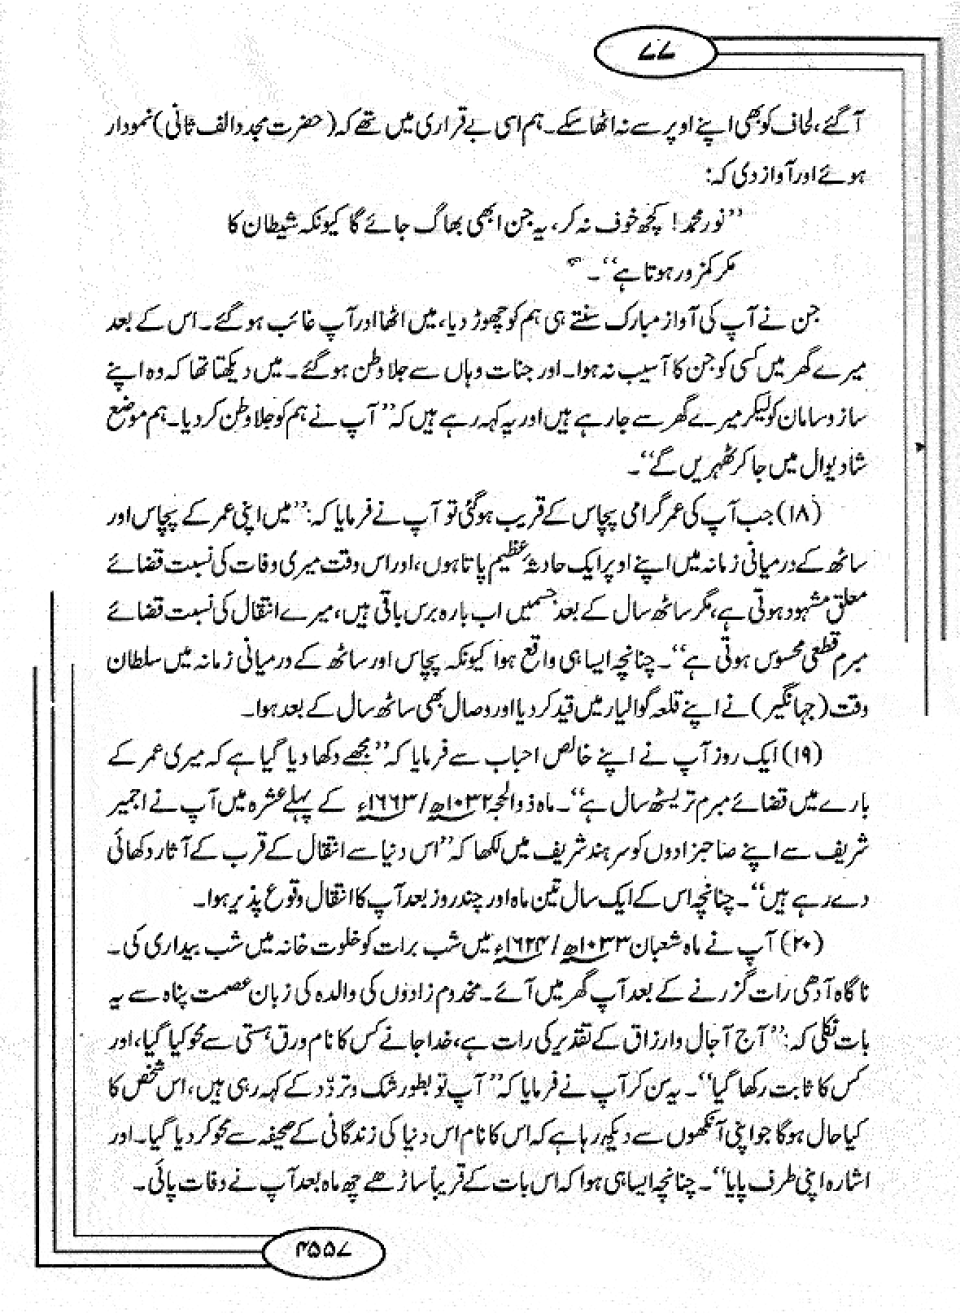 ۷۷
آگئے، لحاف کو بھی اپنے اوپر سے نہ اٹھا سکے۔ ہم اسی بے قراری میں تھے کہ (حضرت مجدد الف ثانی) نمودار
ہوئے اور آواز دی کہ:
’’نور محمد! کچھ خوف نہ کر، یہ جن ابھی بھاگ جائے گا کیونکہ شیطان کا
مکر کمزور ہوتا ہے‘‘۔
جن نے آپ کی آواز مبارک سنتے ہی ہم کو چھوڑ دیا، میں اٹھا اور آپ غائب ہوگئے۔ اس کے بعد
میرے گھر میں کسی کو جن کا آسیب نہ ہوا۔ اور جنات وہاں سے جلا وطن ہوگئے۔ میں دیکھتا تھا کہ وہ اپنے
ساز و سامان کو لیکر میرے گھر سے جا رہے ہیں اور یہ کہہ رہے ہیں کہ ’’آپ نے ہم کو جلا وطن کر دیا۔ ہم موضع
شادیوال میں جا کر ٹھہریں گے‘‘۔
(۱۸) جب آپ کی عمر گرامی پچاس کے قریب ہوگئی تو آپ نے فرمایا کہ: ’’میں اپنی عمر کے پچاس اور
ساٹھ کے درمیانی زمانہ میں اپنے اوپر ایک حادثۂ عظیم پاتا ہوں، اور اس وقت میری وفات کی نسبت قضائے
معلق مشہود ہوتی ہے، مگر ساٹھ سال کے بعد جسمیں اب بارہ برس باقی ہیں، میرے انتقال کی نسبت قضائے
مبرم قطعی محسوس ہوتی ہے‘‘۔ چنانچہ ایسا ہی واقع ہوا کیونکہ پچاس اور ساٹھ کے درمیانی زمانہ میں سلطان
وقت (جہانگیر) نے اپنے قلعہ گوالیار میں قید کر دیا اور وصال بھی ساٹھ سال کے بعد ہوا۔
(۱۹) ایک روز آپ نے اپنے خالص احباب سے فرمایا کہ ’’مجھے دکھا دیا گیا ہے کہ میری عمر کے
بارے میں قضائے مبرم تریسٹھ سال ہے‘‘۔ ماہ ذوالحجہ ۱۰۳۲ھ/۱۶۶۳ء کے پہلے عشرہ میں آپ نے اجمیر
شریف سے اپنے صاحبزادوں کو سرہند شریف میں لکھا کہ ’’اس دنیا سے انتقال کے قرب کے آثار دکھائی
دے رہے ہیں‘‘۔ چنانچہ اس کے ایک سال تین ماہ اور چند روز بعد آپ کا انتقال وقوع پذیر ہوا۔
(۲۰) آپ نے ماہ شعبان ۱۰۳۳ھ/۱۶۲۴ء میں شب برات کو خلوت خانہ میں شب بیداری کی۔
ناگاہ آدھی رات گزرنے کے بعد آپ گھر میں آئے۔ مخدوم زادوں کی والدہ کی زبان عصمت پناہ سے یہ
بات نکلی کہ: ’’آج آجال و ارزاق کے تقدیر کی رات ہے، خدا جانے کس کا نام ورق ہستی سے محو کیا گیا، اور
کس کا ثابت رکھا گیا‘‘۔ یہ سن کر آپ نے فرمایا کہ ’’آپ تو بطور شک و تردّد کے کہہ رہی ہیں، اس شخص کا
کیا حال ہوگا جو اپنی آنکھوں سے دیکھ رہا ہے کہ اس کا نام اس دنیا کی زندگانی کے صحیفہ سے محو کر دیا گیا۔ اور
اشارہ اپنی طرف پایا‘‘۔ چنانچہ ایسا ہی ہوا کہ اس بات کے قریباً ساڑھے چھ ماہ بعد آپ نے وفات پائی۔
۴۵۵۷